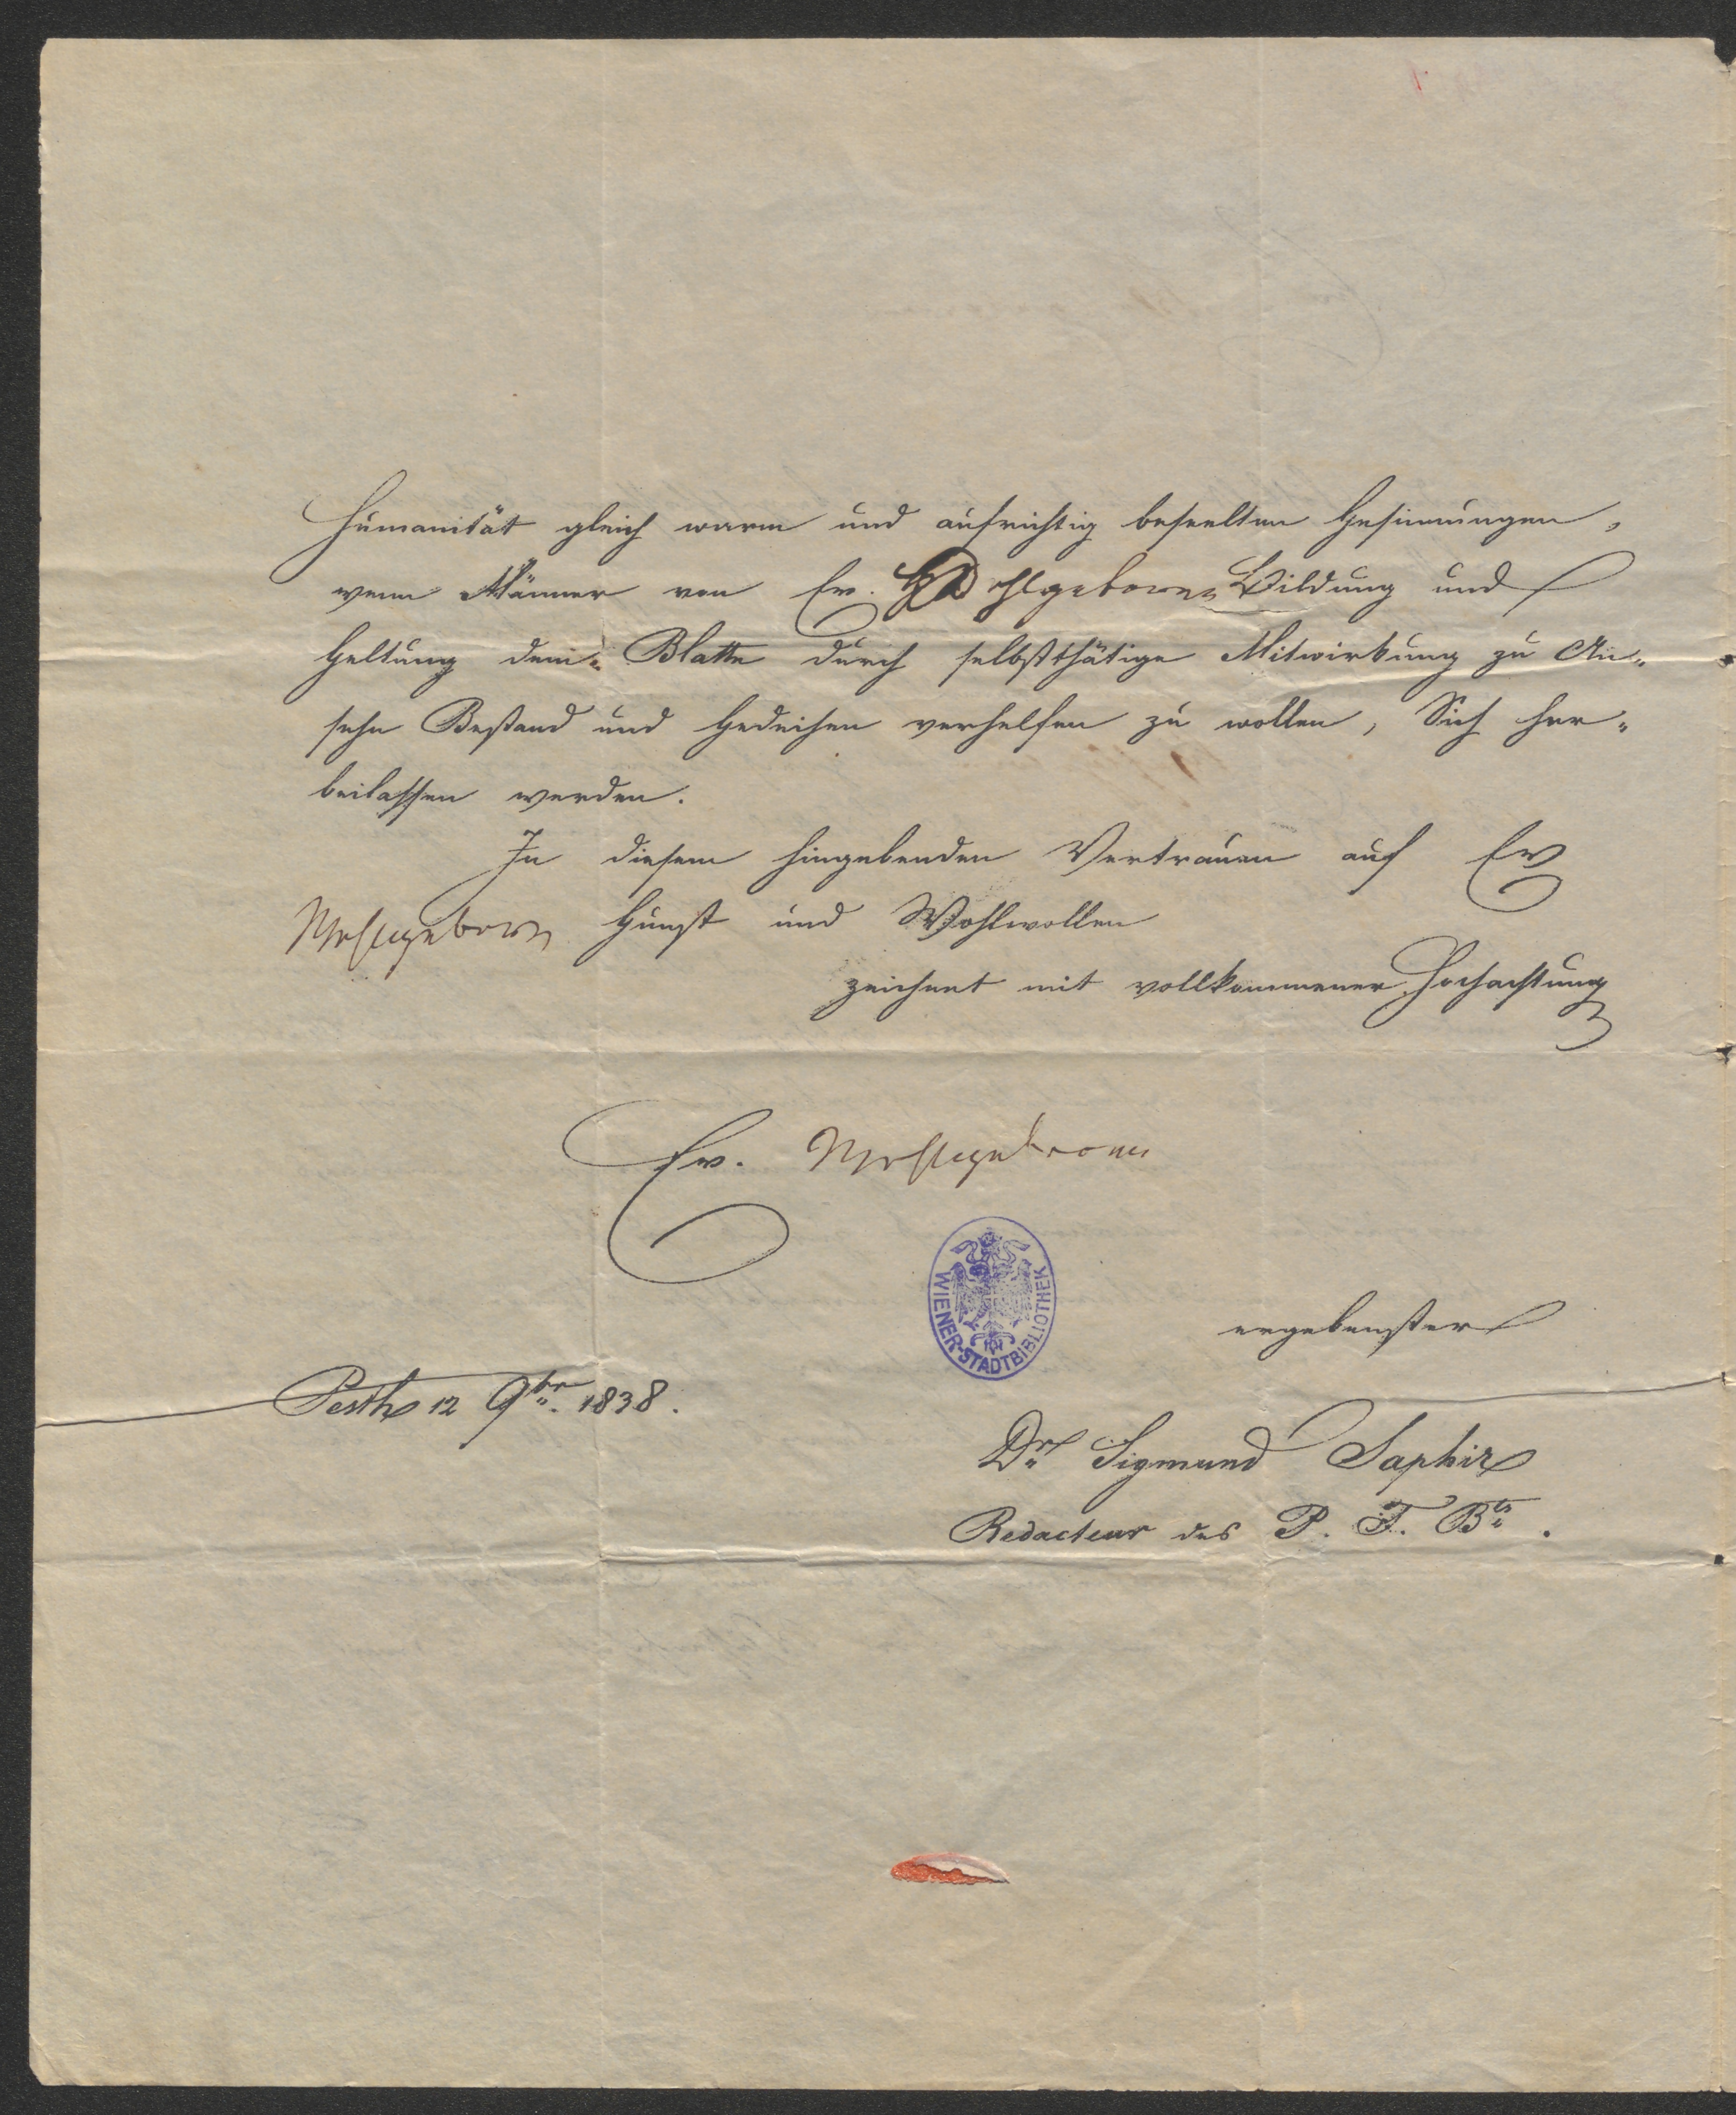 Humanität gleich warm und aufrichtig beseelten Gesinnungen,
wenn Männer von Ew. Wohlgeboren Bildung und
Geltung dem Blatte durch selbstthätige Mitwirkung zu An-
sehn Bestand und Gedeihen verhelfen zu wollen, Sich her-
beilassen werden.
In diesem hingebenden Vertrauen auf Ew
Wohlgeborn Gunst und Wohlwollen
zeichnet mit vollkommener Hochachtung
Ew. Wohlgeboren
WIENER-STADTBIBLIOTHEK
ergebenster
Pesth 12 9br. 1838.
Dr Sigmund Saphir
Redacteur des P. T. Bts.